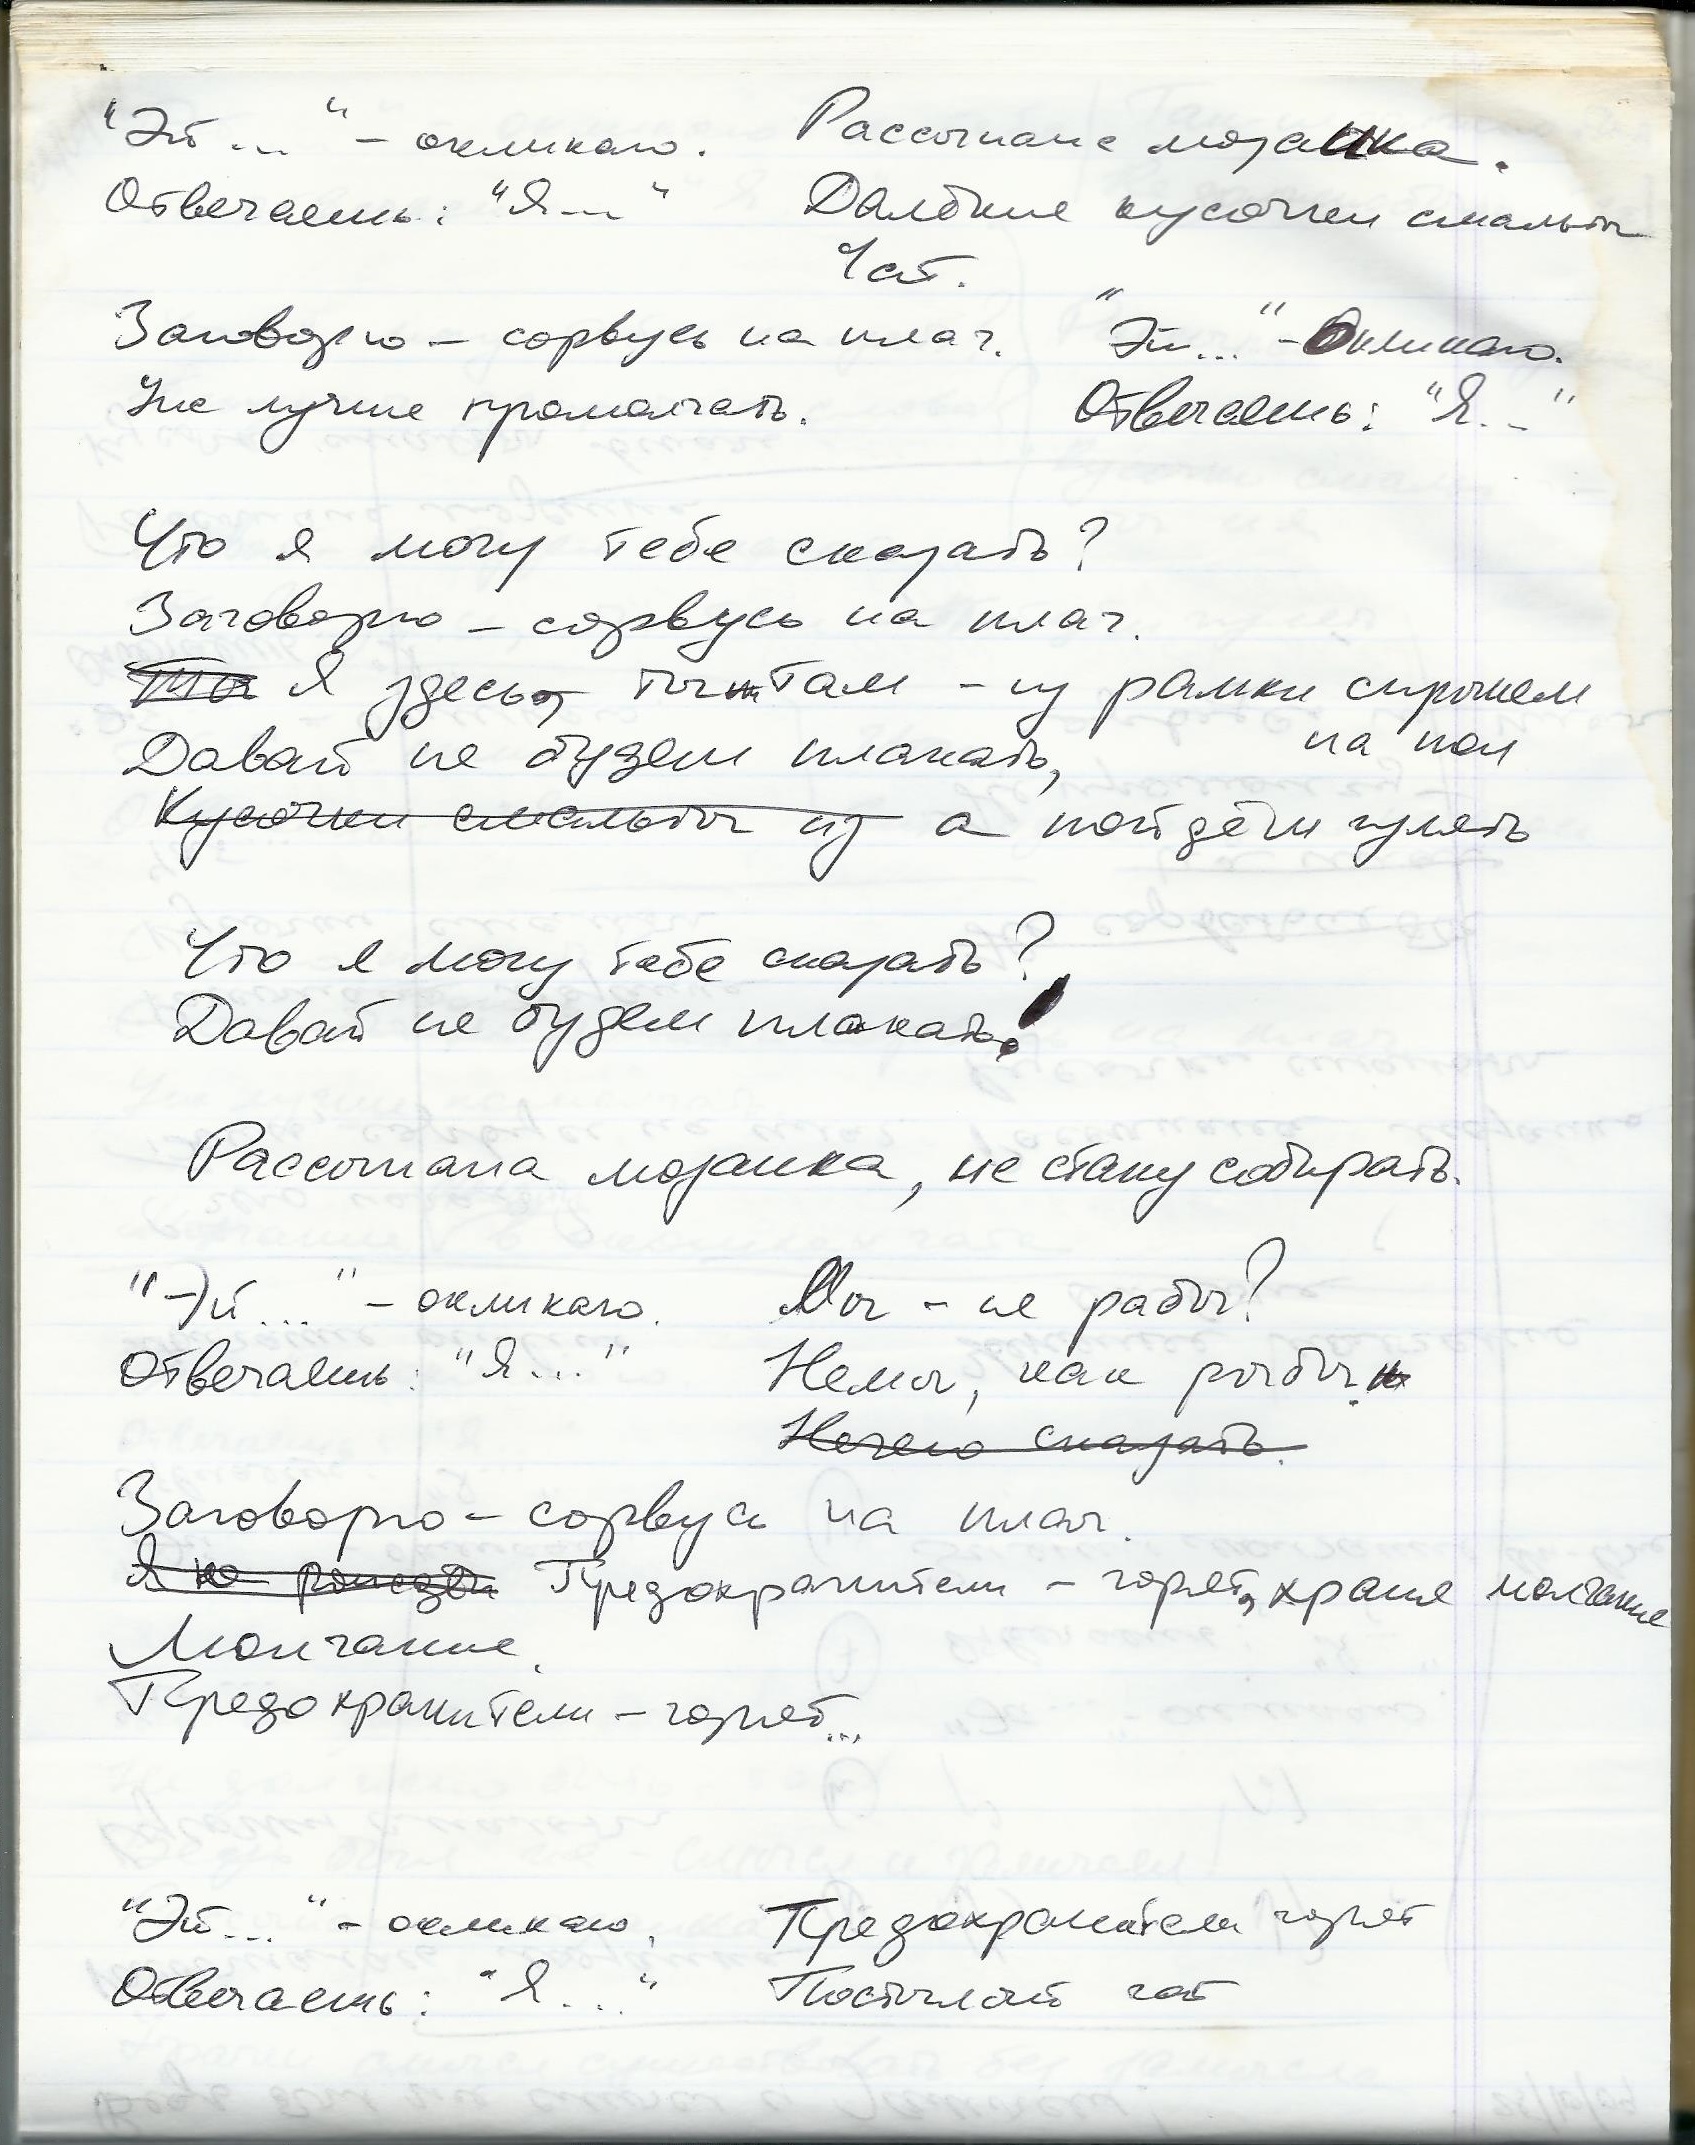 "Эй ..." - окликаю. Рассыпана мозаика.
Отвечаешь: "Я..." Далёкие кусочки смальты
Чат.
Заговорю - сорвусь на плач. "Эй..." - Окликаю.
Уже лучше промолчать. Отвечаешь: "Я..."
Что я могу тебе сказать?
Заговорю - сорвусь на плач.
Я здесь, ты там - из рамки спрыгнем
на пол
Давай не будем плакать,
Кусочки смальты из а пойдём гулять
Что я могу тебе сказать?
Давай не будем плакать!
Рассыпана мозаика, не стану собирать.
"Эй ..." - окликаю. Мы - не рабы?
Отвечаешь: "Я ..." Немы, как рыбы.
Нечего сказать.
Заговорю - сорвусь на плач.
Я не Предохранители - горят, храня молчание
Молчание.
Предохранители - горят...
"Эй ..." - окликаю. Предохранители горят
Отвечаешь: "Я ..." Постылый чат